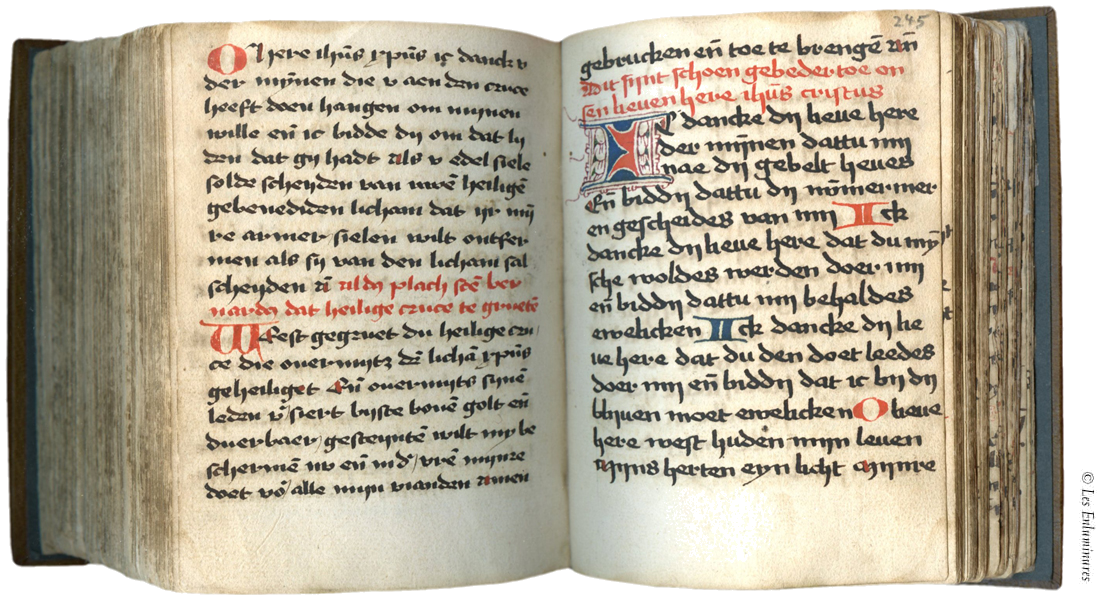 O here ihūs xpūs ic danck v
der mȳnen die v aen den cruce
heeft doen hangen om mijnen
wille en̄ ic bidde dij om dat lij
den dat gij hadt als v edel siele
solde scheyden van uwē heiligē
gebenediden licham dat ir mij
re armer sielen wilt ontfer
men als sij van den licham sal
scheyden am̄ aldꝫ plach sctē ber
nardꝫ dat heilige cruce te gruetē
West gegruet du heilige cru
ce die ouermijtz dē lichā xpūs
geheiliget En̄ ouermijts sijnē
leden v̄siert bijste bouē golt en̄
duerbaer gesteyntē wilt my be
schermē nv en̄ in dʼ vrē mijnre
doet vō alle mijn vianden amen
245
gebrucken en̄ toe te brengē am̄
Dit sijnt schoen gebeder toe on
sen lieuen here ihūs cristus
IC dancke dij lieue here
der mijnen dattu mij
nae dij gebelt heues
En̄ bid dij dattu dij nȳmermer
en gescheides van mij Ick
dancke dij lieue here dat du mȳ
sche woldes werden doer mij
en̄ bid dij dattu mij behaldes
ewelicken Ick dancke dij lie
ue here dat du den doet leedes
doer mij en̄ bid dij dat ic bij dij
blijuen moet ewelicken O lieue
here west huden mijn leuen
Mijns herten eyn licht Mijnre
© Les Enluminures